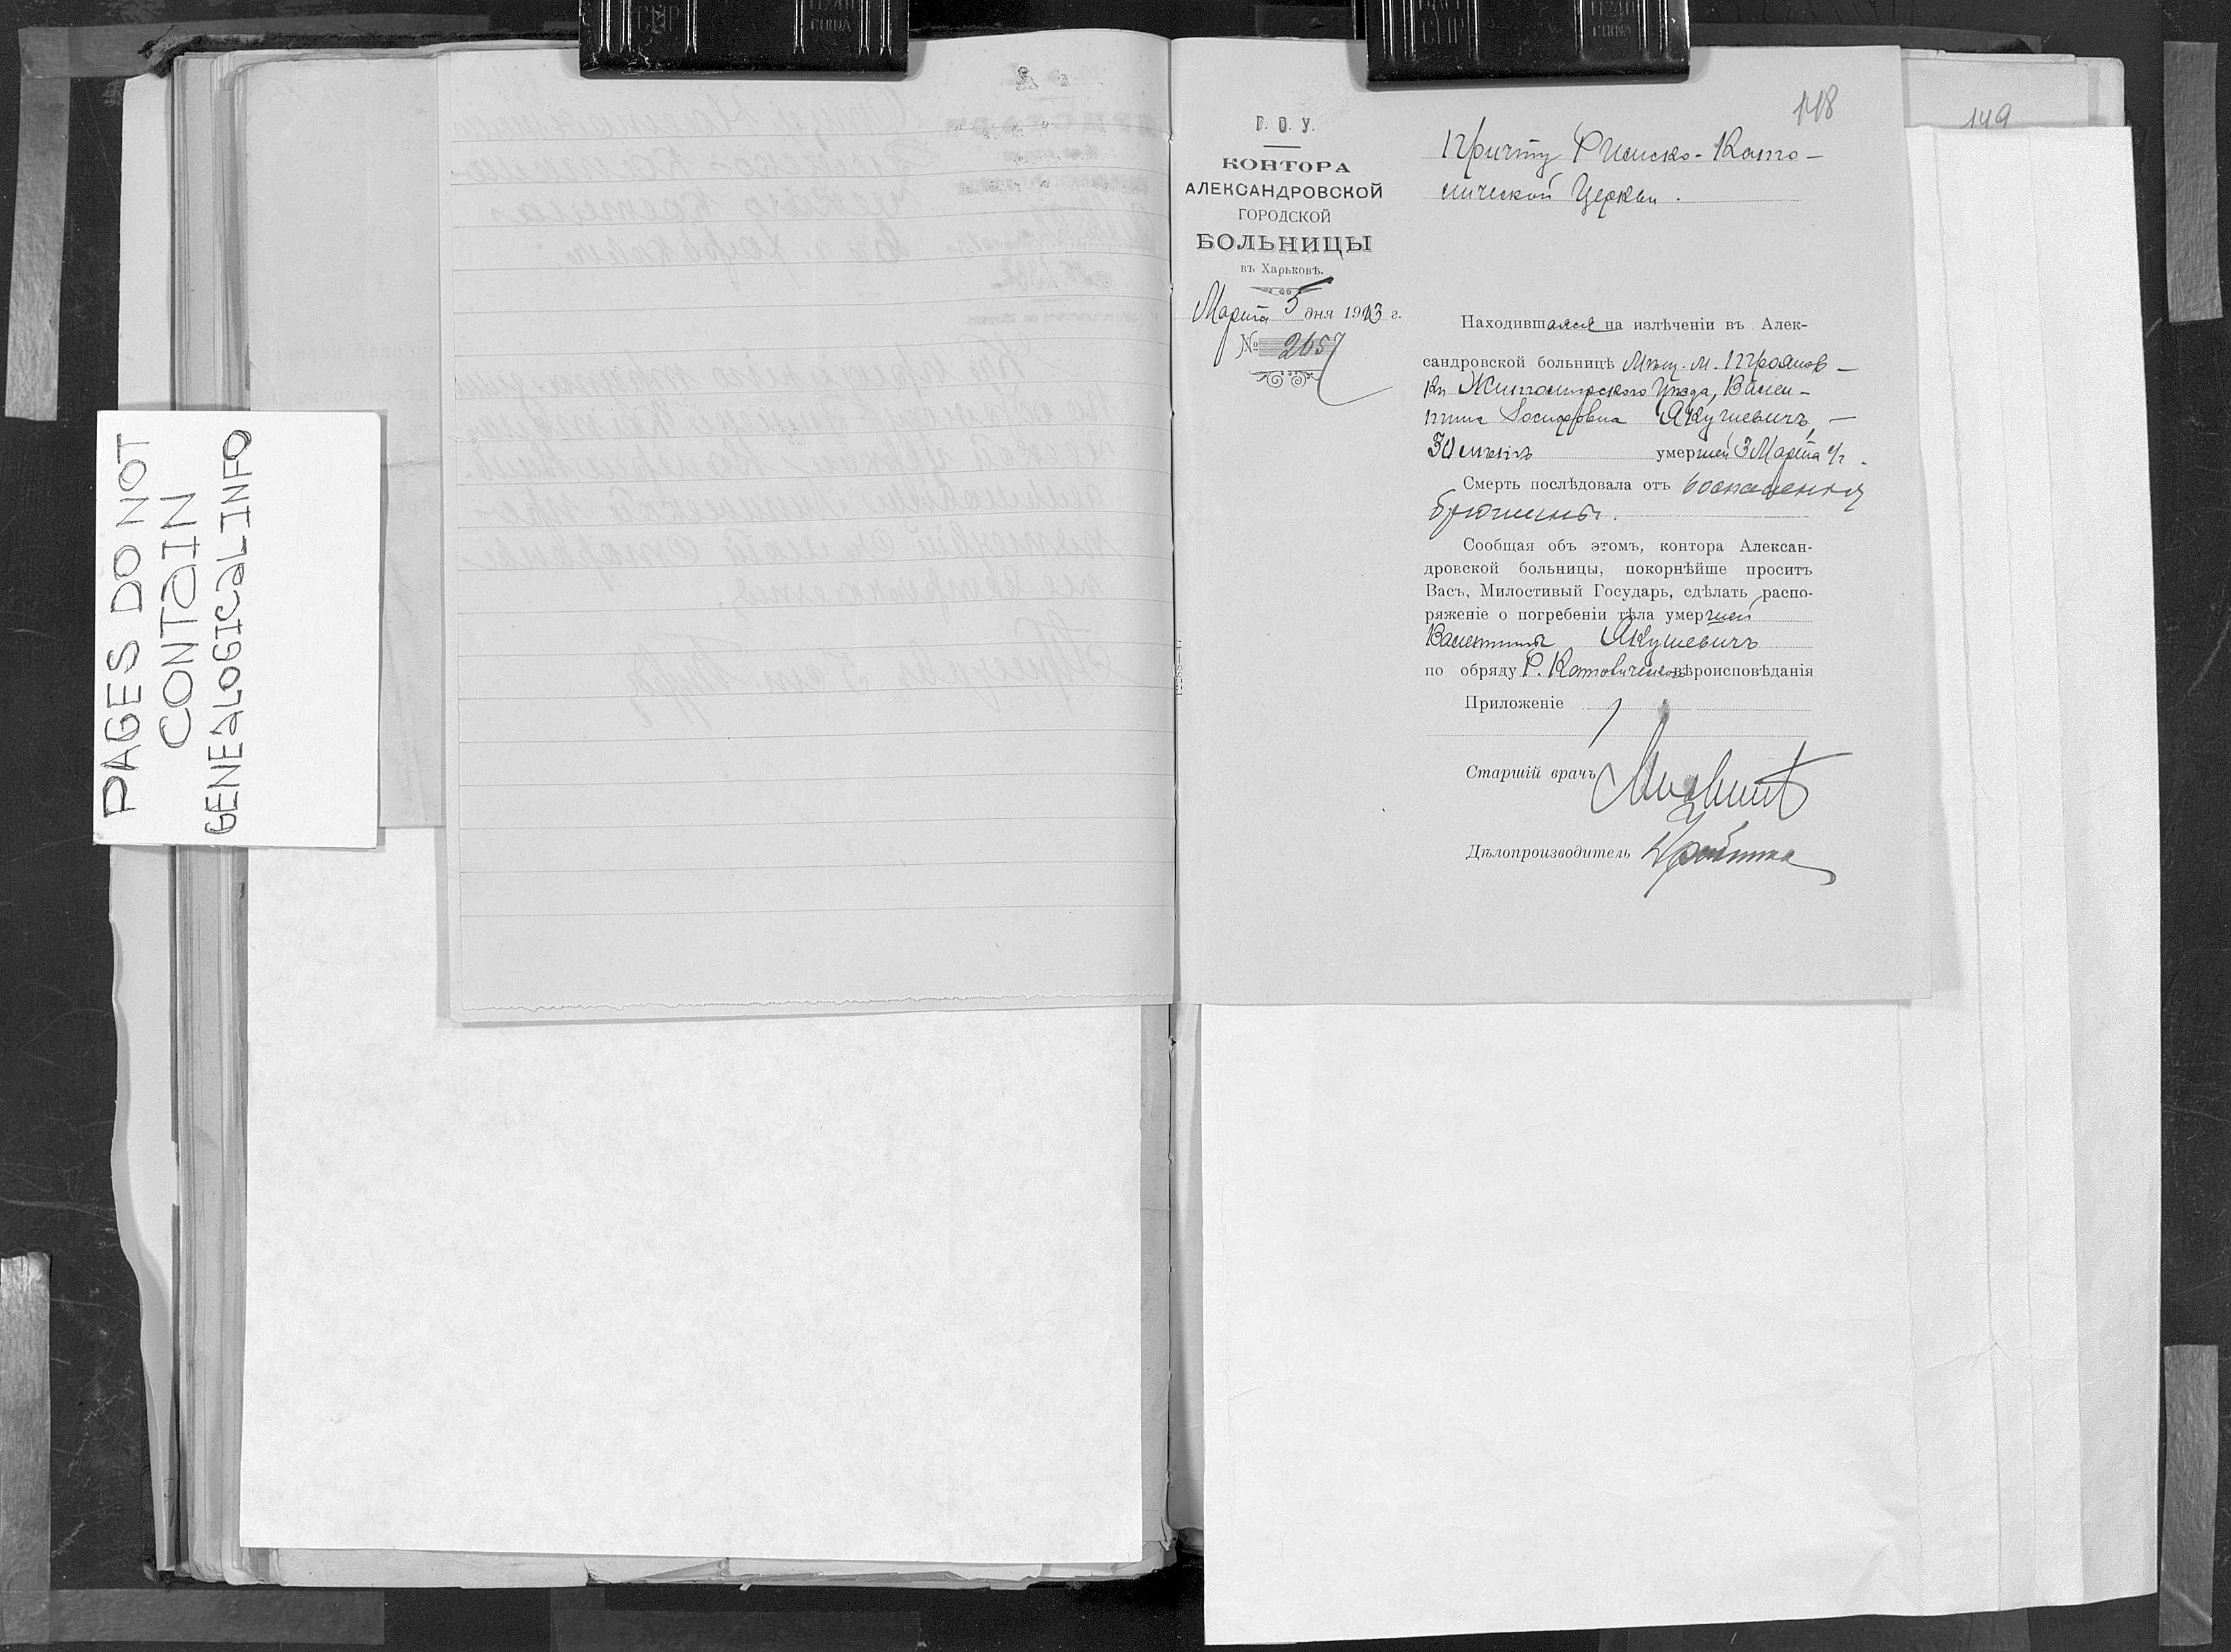 PAGES DO NOT
CONTAIN
GENEALOGICAL INFO
118
149
Г. О. У.
КОНТОРА
АЛЕКСАНДРОВСКОЙ
ГОРОДСКОЙ
БОЛЬНИЦЫ
въ Харьковѣ.
Марта 5 дня 1913 г.
№ 2657
Причту Римско-Като-
лической Церкви.
Находившаяся на излѣченіи въ Алек-
сандровской больницѣ Мѣщ. м. Троянов-
ки Житомирского Уѣзда, Вален-
тина Іосифовна Якушевичъ,
30 лѣтъ умершей 3 Марта с/г.
Смерть послѣдовала отъ воспаленія
брюшины.
Сообщая объ этомъ, контора Алексан-
дровской больницы, покорнѣйше проситъ
Васъ, Милостивый Государь, сдѣлать распо-
ряженіе о погребеніи тѣла умершей
Валентины Якушевичъ
по обряду Р. Католическ вѣроисповѣданія
Приложеніе
Старшій врачъ
Дѣлопроизводитель